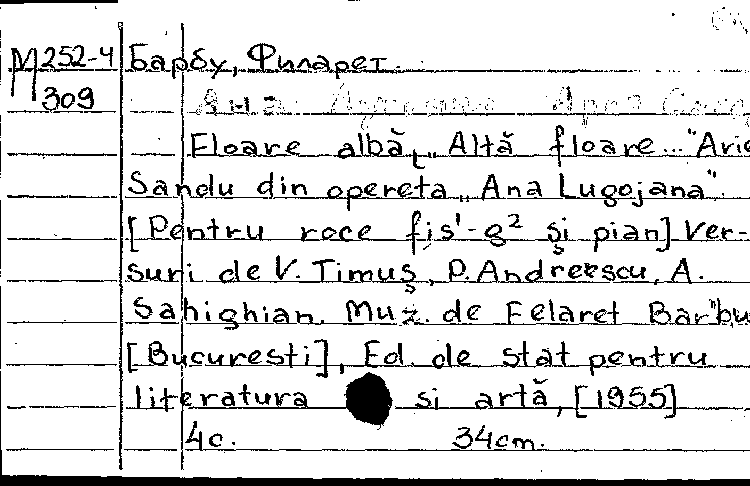 М252-4 Барбу, Филарет.
309
Ана
Floare albă, „Altă floare..." Arie
Sandu din opereta „Ana Lugojana".
[Pentru roce fis'-g² şi pian] Ver-
suri de V. Timuş, P. Andreescu, A.
Sahighian. Muz. de Felaret Barbu
[Bucuresti], Ed. de stat pentru
literatura si artă, [1955]
4c. 34cm.